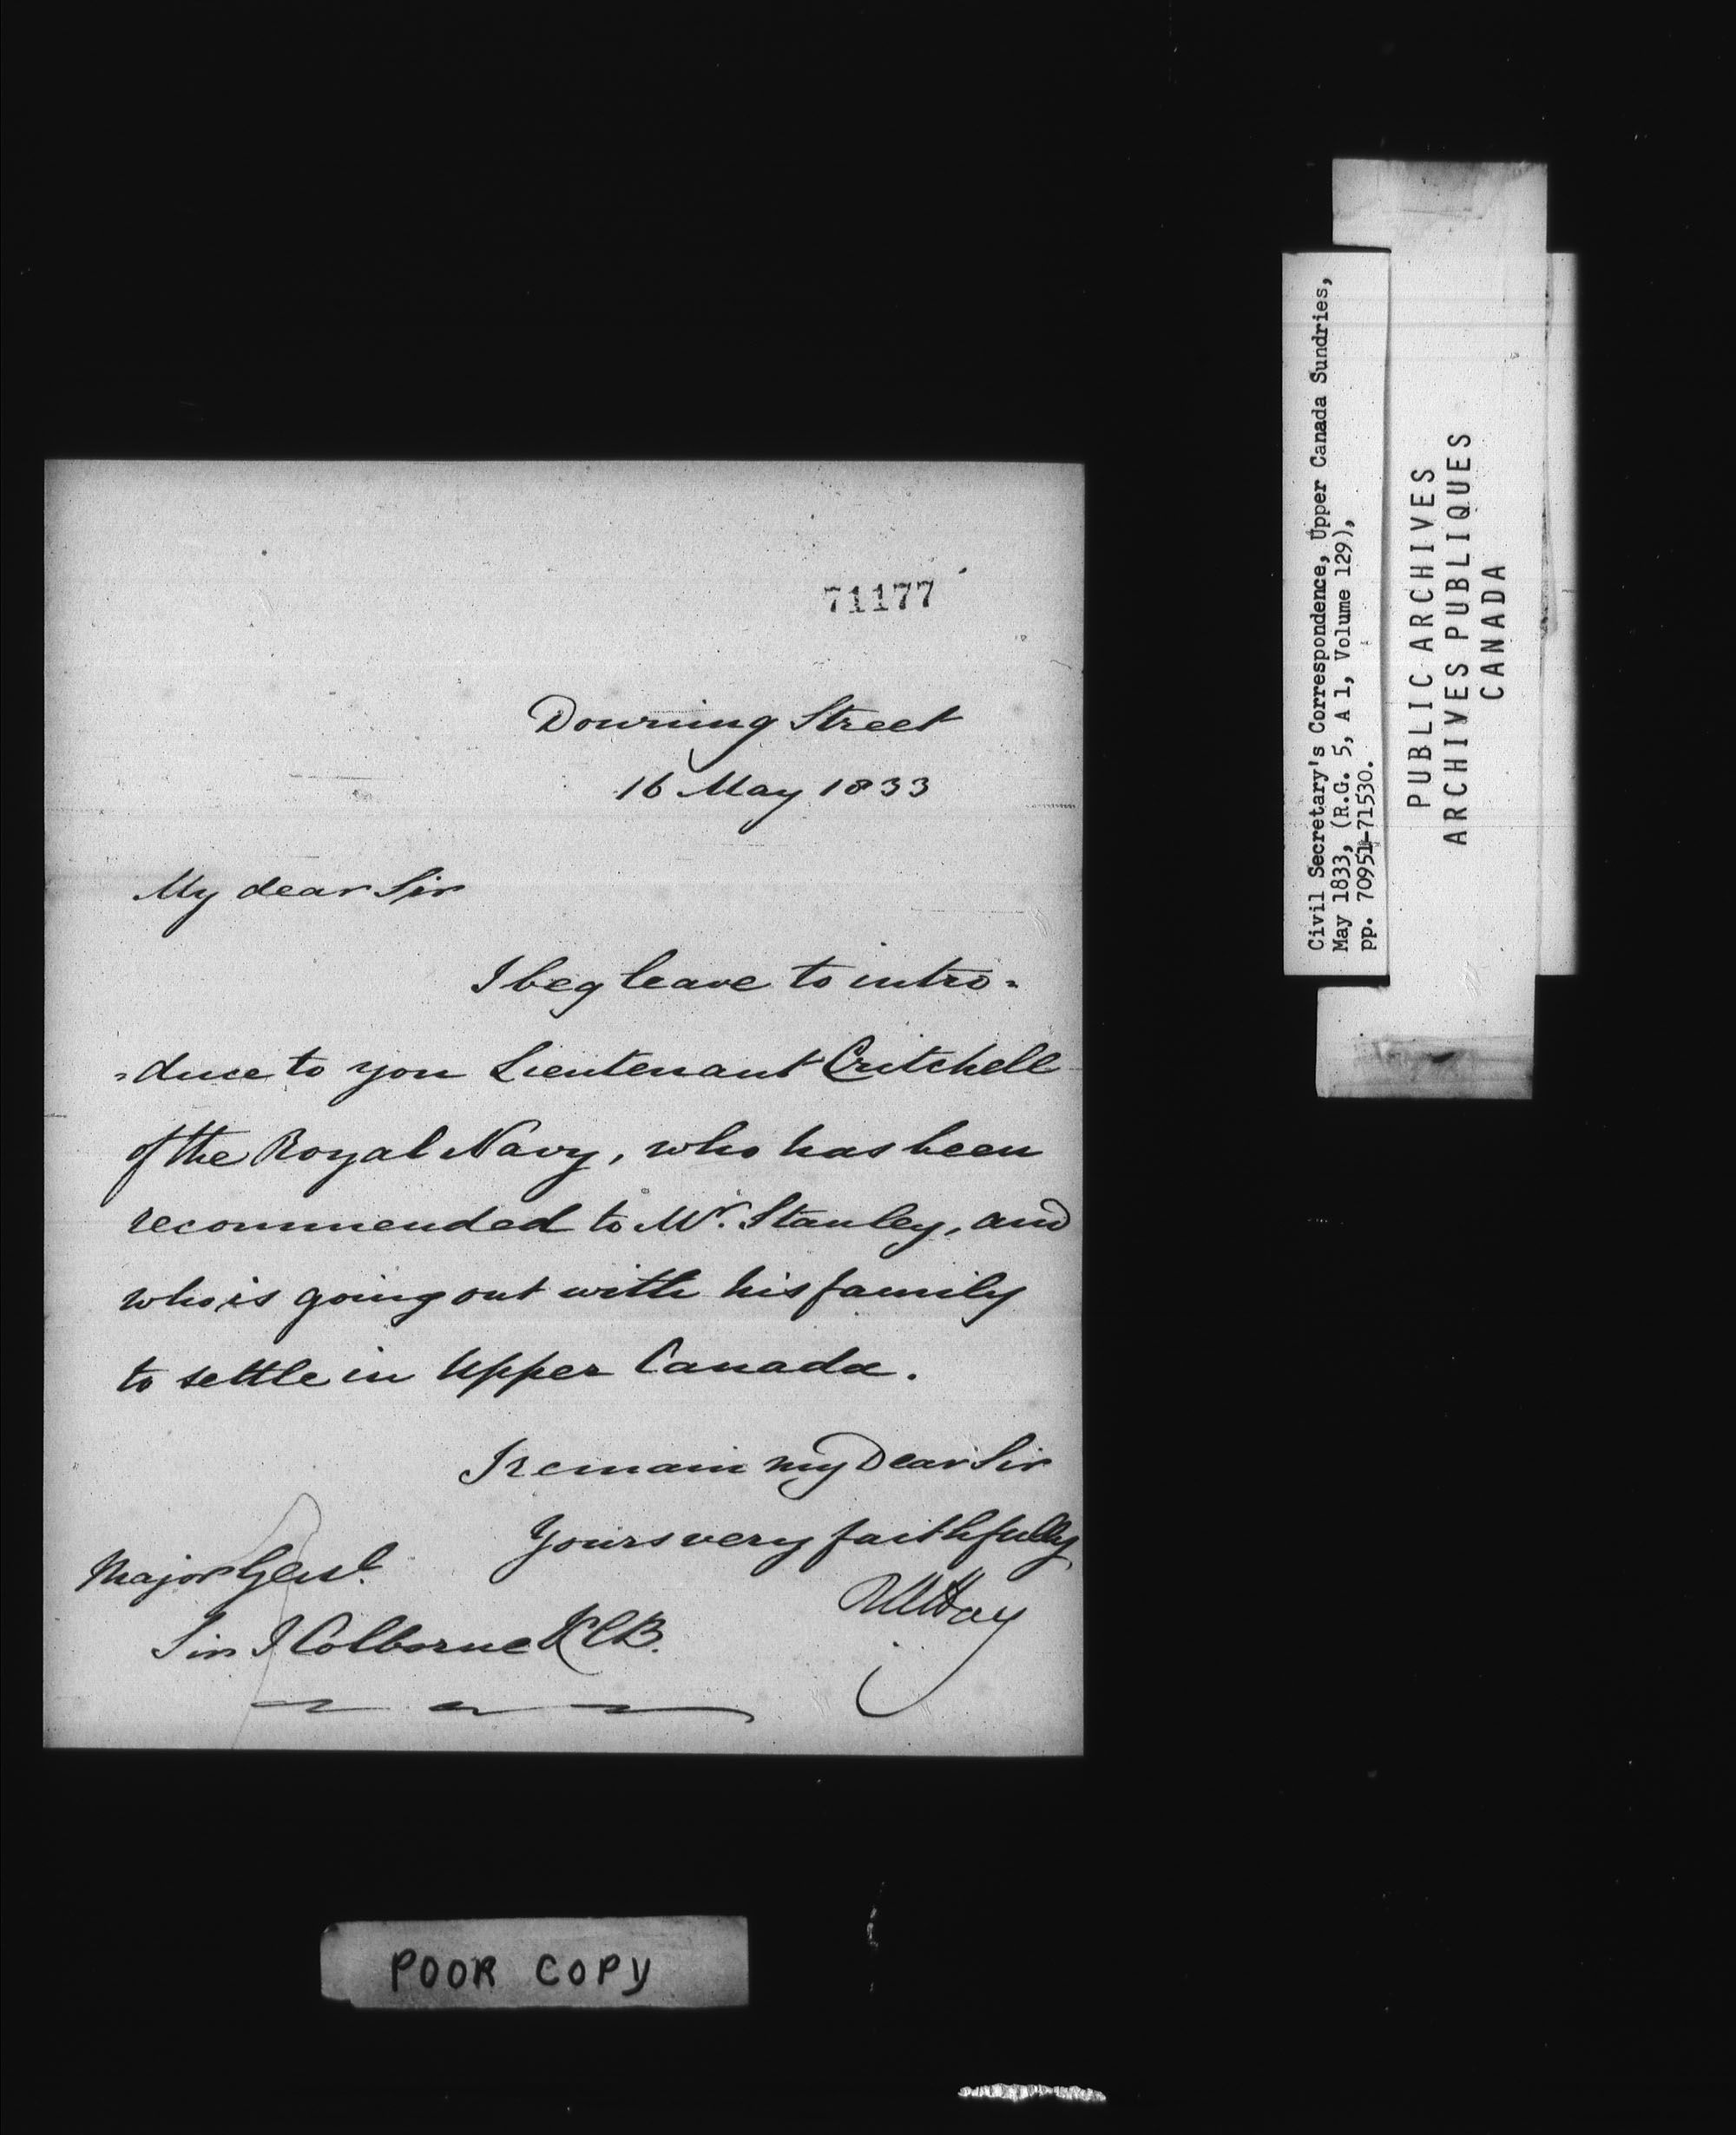 71177
Downing Street
16 May 1833
My dear Sir
I beg leave to intro-
-duce to you Lieutenant Critchell
of the Royal Navy, who has been
recommended to Mr. Stanley, and
who is going out with his family
to settle in Upper Canada.
I remain my Dear Sir
Yours very faithfully
RWHay
Major Genl.
Sir J Colborne KCB.
POOR COPY
Civil Secretary's Correspondence, Upper Canada Sundries,
May 1833, (R.G. 5, A 1, Volume 129),
pp. 70951-71530.
PUBLIC ARCHIVES
ARCHIVES PUBLIQUES
CANADA